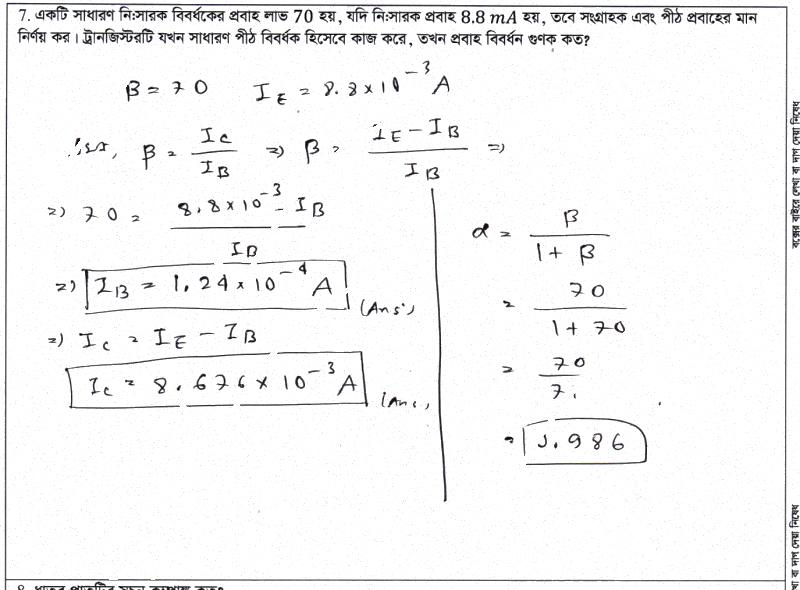 7. একটি সাধারণ নিঃসারক বিবর্ধকের প্রবাহ লাভ 70 হয়, যদি নিঃসারক প্রবাহ 8.8 mA হয়, তবে সংগ্রাহক এবং পীঠ প্রবাহের মান
নির্ণয় কর। ট্রানজিস্টরটি যখন সাধারণ পীঠ বিবর্ধক হিসেবে কাজ করে, তখন প্রবাহ বিবর্ধন গুণক কত?
β = 70 I_E = 8.8×10^-3 A
β = I_C / I_B ⇒ β = (I_E − I_B) / I_B ⇒
⇒ 70 = (8.8×10^-3 − I_B) / I_B
⇒ I_B = 1.24×10^-4 A (Ans:)
⇒ I_C = I_E − I_B
I_C = 8.676×10^-3 A (Ans:)
α = β / (1 + β)
= 70 / (1 + 70)
= 70 / 71
= 0.986
বক্সের বাইরে লেখা বা দাগ দেয়া নিষেধ
খা বা দাগ দেয়া নিষেধ